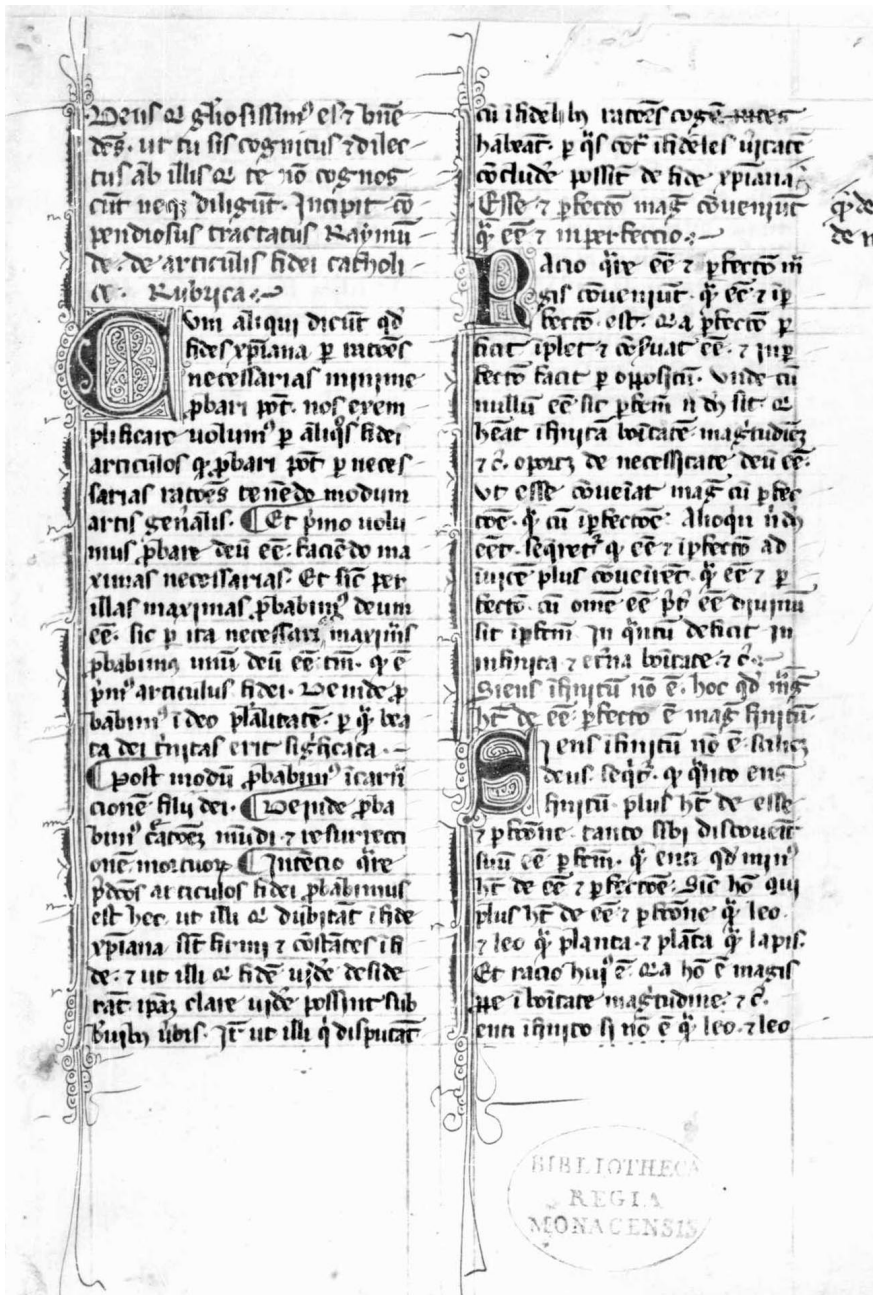 Deus q̄ gl̓iosissim᷒ es ⁊ bn̄e
dc̄s. ut tu sis cognitus ⁊ dilec
tus ab illis q̄ te nō cognos
cūt neq₃ diligūt. Incipit cō
pendiosus tractatus Raymū
de. de articulis fidei catholi
ce. Rubrica.
Cum aliqui dicūt qd̓
fides xp̄iana p̱ ratōes
necessarias minime
ꝓbari pōt. nos exem
plificare uolum᷒ p̱ aliq̓s fidei
articulos q̓ ꝓbari pōt p̱ neces
sarias ratōes tenēdo modum
artis gen̄alis. ¶ Et p̓mo uolu
mus ꝓbare deū eē. faciēdo ma
ximas necessarias. Et sic̄ per
illas maximas ꝓbabim᷒ deum
eē. sic p̱ ita necessari maximis
ꝓbabimus unū deū eē tm̄. q̓ ē
p̓m᷒ articulus fidei. Deinde ꝓ
babim᷒ ī deo pl̓alitatē. p̱ q̄ bea
ta dei t̓nitas erit sig̓ficata.
¶ Post modū ꝓbabim᷒ īcarn̄
cionē filii dei. ¶ Deinde ꝓba
bim᷒ c̓atōeꝫ mūdi. ⁊ resurrecti
onē mortuoꝝ ¶ Intēcio q̓re
p̓dc̄os articulos fidei ꝓbabimus
est hec. ut illi q̄ dubitāt ī fide
xp̄iana sīt firmi ⁊ cōstātes ī fi
de. ⁊ ut illi q̄ fidē uid̓e deside
rāt ip̄aꝫ clare uid̓e possint sub
breuibꝫ u̓bis. It̄ ut illi q̓ disputāt
cū īfidelibꝫ ratōes cogē̄tes
habeāt. p̱ q̓s cōt̓ īfideles u̓itatē
cōclud̓e possīt de fide xp̄iana.
Esse ⁊ p̱fectō mag̓ cōueniūt
q̄ eē ⁊ inperfeccio.
Racio q̓re eē ⁊ p̱fectō m̄
gis cōueniūt. q̄ eē ⁊ īp̱
fectō. est. q̄a p̱fectō p̱
ficit īplet ⁊ cōs̓uat eē. ⁊ inp̱
fectō facit p̱ oppositū. Vnde cū
nullū eē sic p̱fcm̄ n̄ dꝫ sit. q̄
hēat īfinitā bōitatē. mag̓tudiēꝫ
⁊ c̄. oportꝫ de necessitate deū eē.
Vt esse cōueiat mag̓ cū p̱fec
tōe. q̄ cū īp̱fectōe. Alioqui
eēt. seq̓ret᷒ q̓ eē ⁊ īp̱fectō ad
īuicē plus cōueirēt. q̄ eē ⁊ p̱
fectō. cū omē eē p̓t̓ eē diuinū
sit īp̱fcm̄ in q̓ntū deficit in
infinita ⁊ et̓na bōitate ⁊ c̄.
Si ens īfinitū nō ē. hoc qd̓ mag̓
hꝫ de eē p̱fecto ē mag̓ finitū.
Si ens īfinitū nō ē. scilicꝫ
deus. seq̓t᷒. q̓ q̓nto ens
finitū plus hꝫ de esse
⁊ p̱fcōne. tanto sibi discōueit
suū eē p̱fcm̄. q̄ enti qd̓ min᷒
hꝫ de eē ⁊ p̱fectōe. Sic̄ hō qui
plus hꝫ de eē ⁊ p̱fcōne q̄ leo.
⁊ leo q̄ planta. ⁊ plāta q̄ lapis.
Et racio hui᷒ ē. q̄a hō ē magis
ꝓpe ī bōitate mag̓tudine. ⁊ c̄.
enti īfinito si nō ē q̄ leo. ⁊ leo
BIBLIOTHECA
REGIA
MONACENSIS